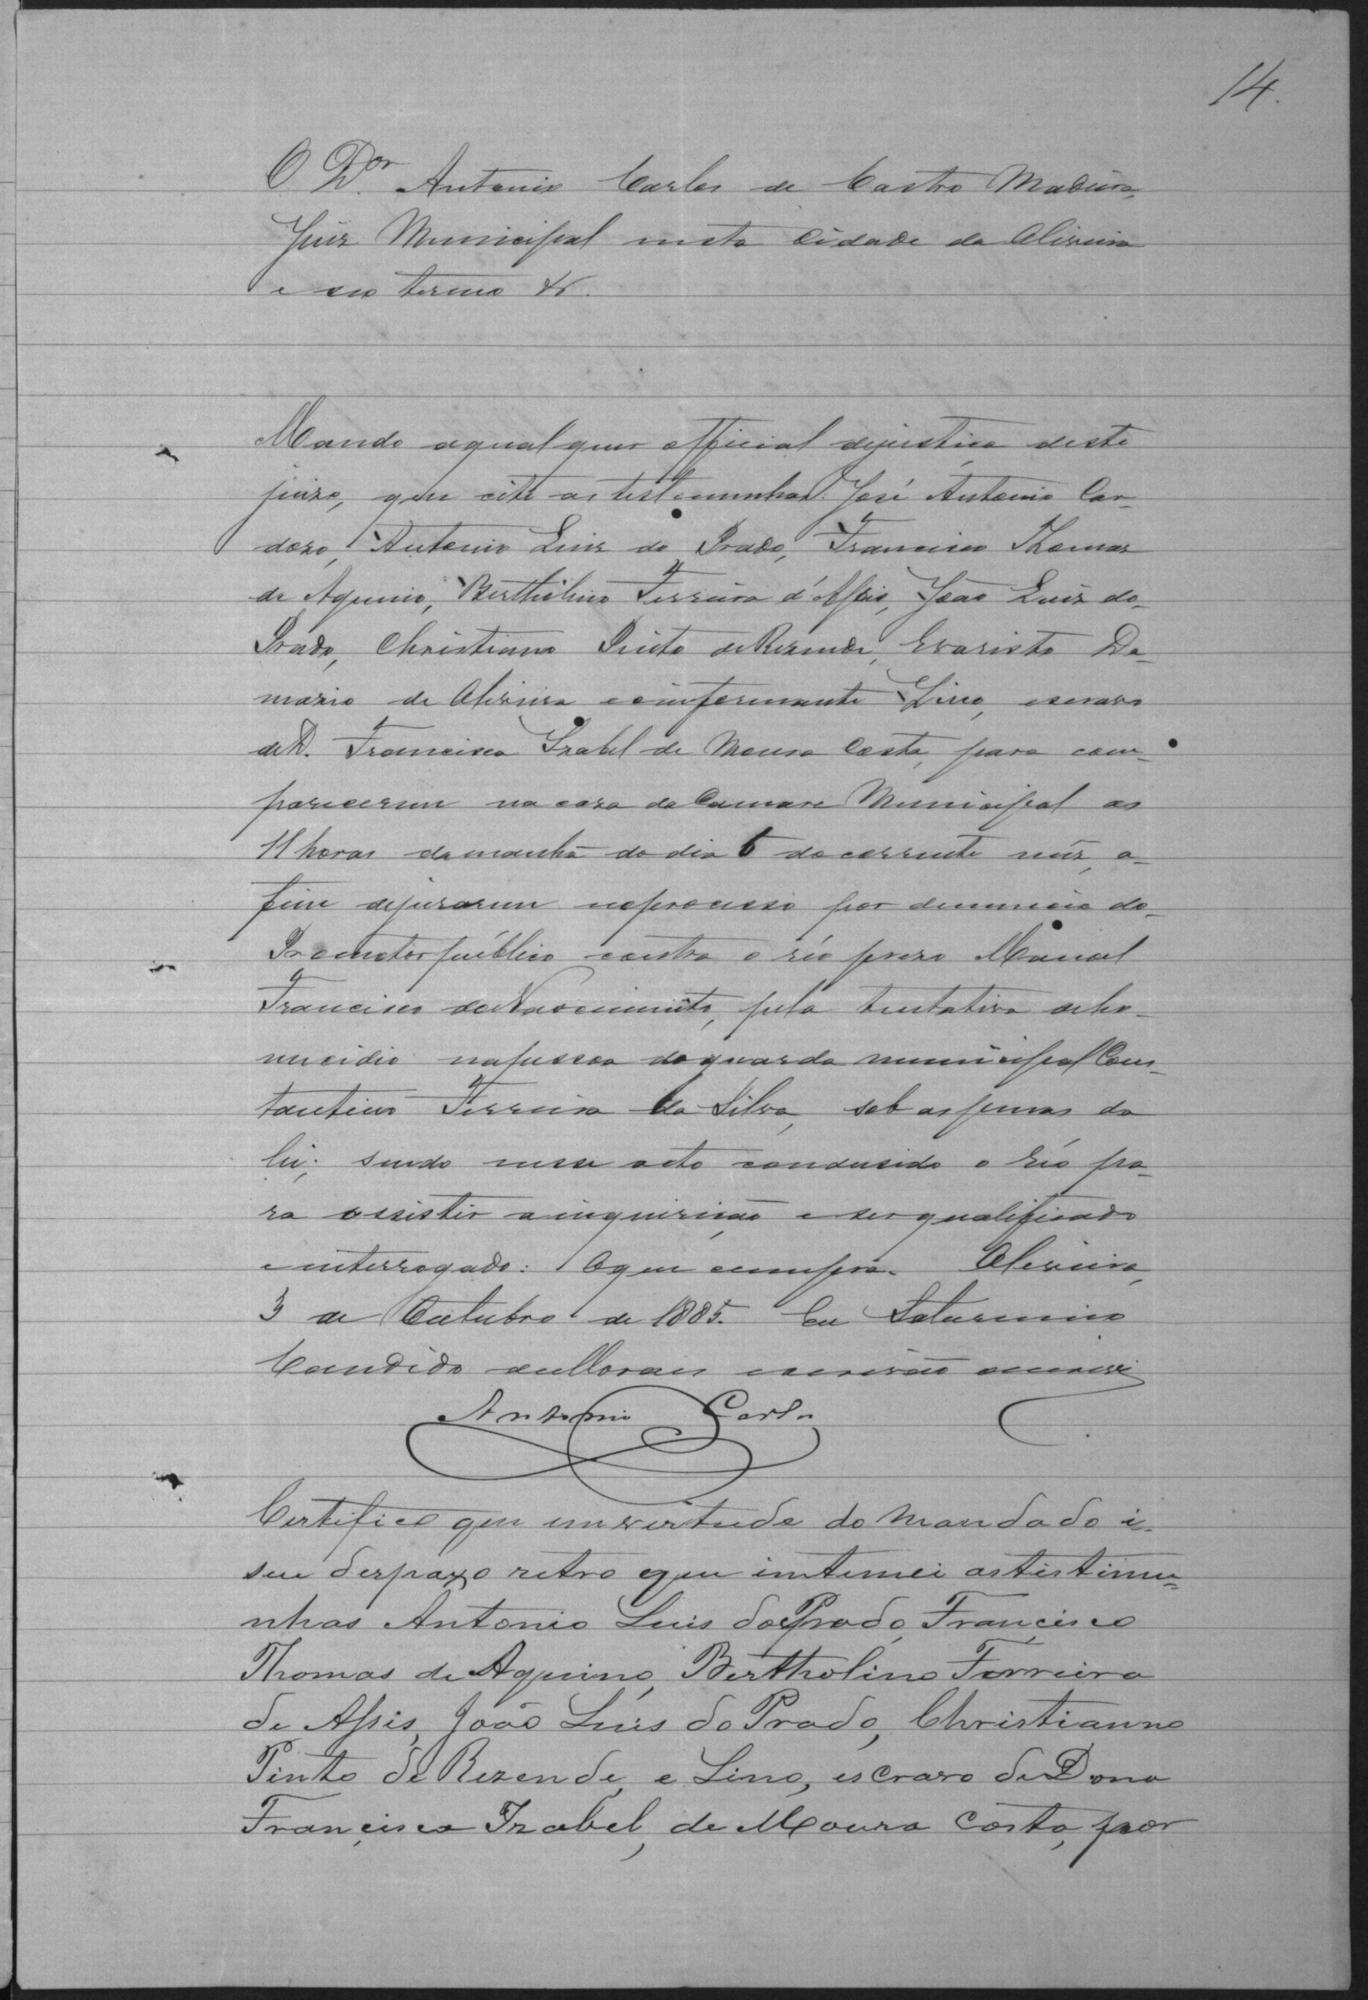 14.
O D.or Antonio Carlos de Castro Madeira,
Juiz Municipal nesta Cidade da Oliveira
e seo termo &.
Mando aqualquer official dejustiça deste
juizo, que cite as testemunhas José Antonio Car-
dozo, Antonio Luiz do Prado, Francisco Thomas
de Aquino, Bertholino Ferreira d'Assis, João Luiz do
Prado, Christiano Pinto deRezende, Evaristo Da-
mazio de Oliveira e oinformante Lino, escravo
deD. Francisca Izabel de Moura Costa, para com-
parecerem na caza da Camara Municipal as
11 horas damanhã do dia 6 docorrente mez, a-
fim dejurarem noprocesso por denuncia do
Promotor público contra o réo prezo Manoel
Francisco doNascimento, pela tentativa deho-
micidio napessoa doguarda municipal Cons-
tantino Ferreira da Silva, sob aspenas da
lei; sendo nesse acto condusido o réo pa-
ra assistir ainquirição e serqualificado
e interrogado: Oque cumpra. Oliveira,
3 de Outubro de 1885. Eu Saturnino
Candido deMoraes escrivão oescrevi
Antonio Carlos
Certifico que emvertude do mandado i
seu despaxo retro que intimei astestimu-
nhas Antonio Luis do Prado, Francisco
Thomas de Aquino, Bertholino Ferreira
de Assis, João Luis do Prado, Christianno
Pinto de Rezende, e Lino, escravo de Dona
Francisca Izabel, de Moura Costa, por